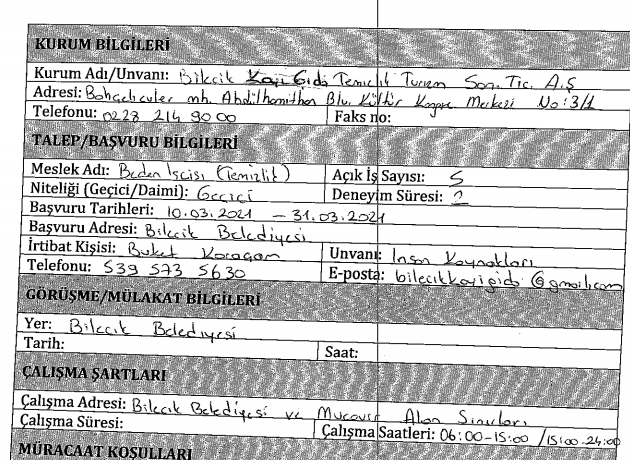 KURUM BİLGİLERİ
Kurum Adı/Unvanı: Bilecik Kayı Gıda Temizlik Turizm San. Tic. A.Ş
Adresi: Bahçelievler mh. Abdülhamithan Blv. Kültür Kongre Merkezi No:3/1
Telefonu: 0228 214 90 00 Faks no:
TALEP/BAŞVURU BİLGİLERİ
Meslek Adı: Beden İşçisi (Temizlik) Açık İş Sayısı: 5
Niteliği (Geçici/Daimi): Geçici Deneyim Süresi: 2
Başvuru Tarihleri: 10.03.2021 - 31.03.2021
Başvuru Adresi: Bilecik Belediyesi
İrtibat Kişisi: Buket Unvanı: İnsan Kaynakları
Telefonu: 539 573 5630 E-posta: bilecikkayigida@gmail.com
GÖRÜŞME/MÜLAKAT BİLGİLERİ
Yer: Bilecik Belediyesi
Tarih: Saat:
ÇALIŞMA ŞARTLARI
Çalışma Adresi: Bilecik Belediyesi ve Mücavir Alan Sınırları
Çalışma Süresi: Çalışma Saatleri: 06:00-15:00 /15:00-24:00
MÜRACAAT KOŞULLARI